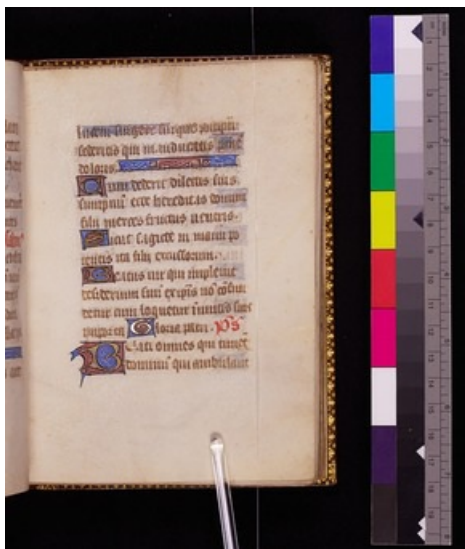 lucem surgite surgite postquam
sederitis qui manducatis panem
doloris.
Cum dederit dilectis suis
sompnum ecce hereditas domini
filii merces fructus uentris.
Sicut sagitte in manu po
tentis ita filii excussorum.
Beatus uir qui impleuit
desiderium suum ex ipsis non confun
detur cum loquetur inimicis suis
in porta Gloria patri. ps
Beati omnes qui timent
dominum qui ambulant